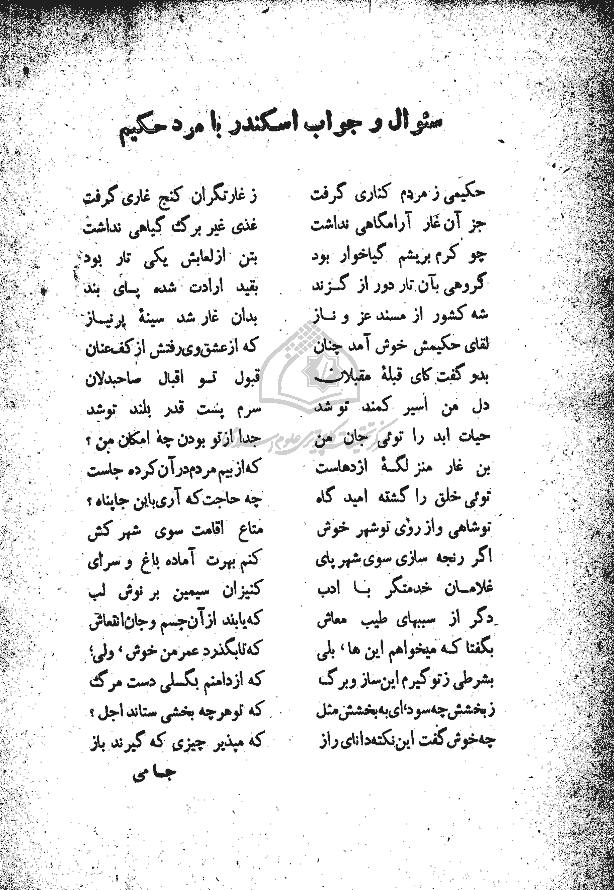 سئوال و جواب اسکندر با مرد حکیم
حکیمی ز مردم کناری گرفت ز غارتگران کنج غاری گرفت
جز آن غار آرامگاهی نداشت غذی غیر برگ گیاهی نداشت
چو کرم بریشم گیاخوار بود بتن ازلعابش یکی تار بود
گروهی بآن تار دور از گزند بقید ارادت شده پای بند
شه کشور از مسند عز و ناز بدان غار شد سینهٔ پرنیاز
لقای حکیمش خوش آمد چنان که ازعشق‌وی‌رفتش ازکف‌عنان
بدو گفت کای قبلهٔ مقبلان قبول تو اقبال صاحبدلان
دل من اسیر کمند توشد سرم پست قدر بلند توشد
حیات ابد را توئی جان من جدا ازتو بودن چه امکان من ؟
بن غار منزلگهٔ اژدهاست که‌ازبیم‌مردم‌درآن‌کرده جاست
توئی خلق را گشته امید گاه چه حاجت‌که آری‌باین جاپناه ؟
توشاهی وازروی توشهر خوش متاع اقامت سوی شهر کش
اگر رنجه سازی سوی‌شهر پای کنم بهرت آماده باغ و سرای
غلامان خدمتگر با ادب کنیزان سیمین بر نوش لب
دگر از سببهای طیب معاش که‌یابند ازآن‌جسم وجان‌انتعاش
بگفتا که میخواهم این ها، بلی که‌تابگذرد عمرمن خوش، ولی؛
بشرطی زتوگیرم این‌ساز وبرگ که ازدامنم بگسلی دست مرگ
زبخشش‌چه‌سود،ای‌به‌بخشش‌مثل که توهرچه بخشی ستاند اجل ؟
چه‌خوش‌گفت این‌نکته‌دانای راز که مپذیر چیزی که گیرند باز
جامی